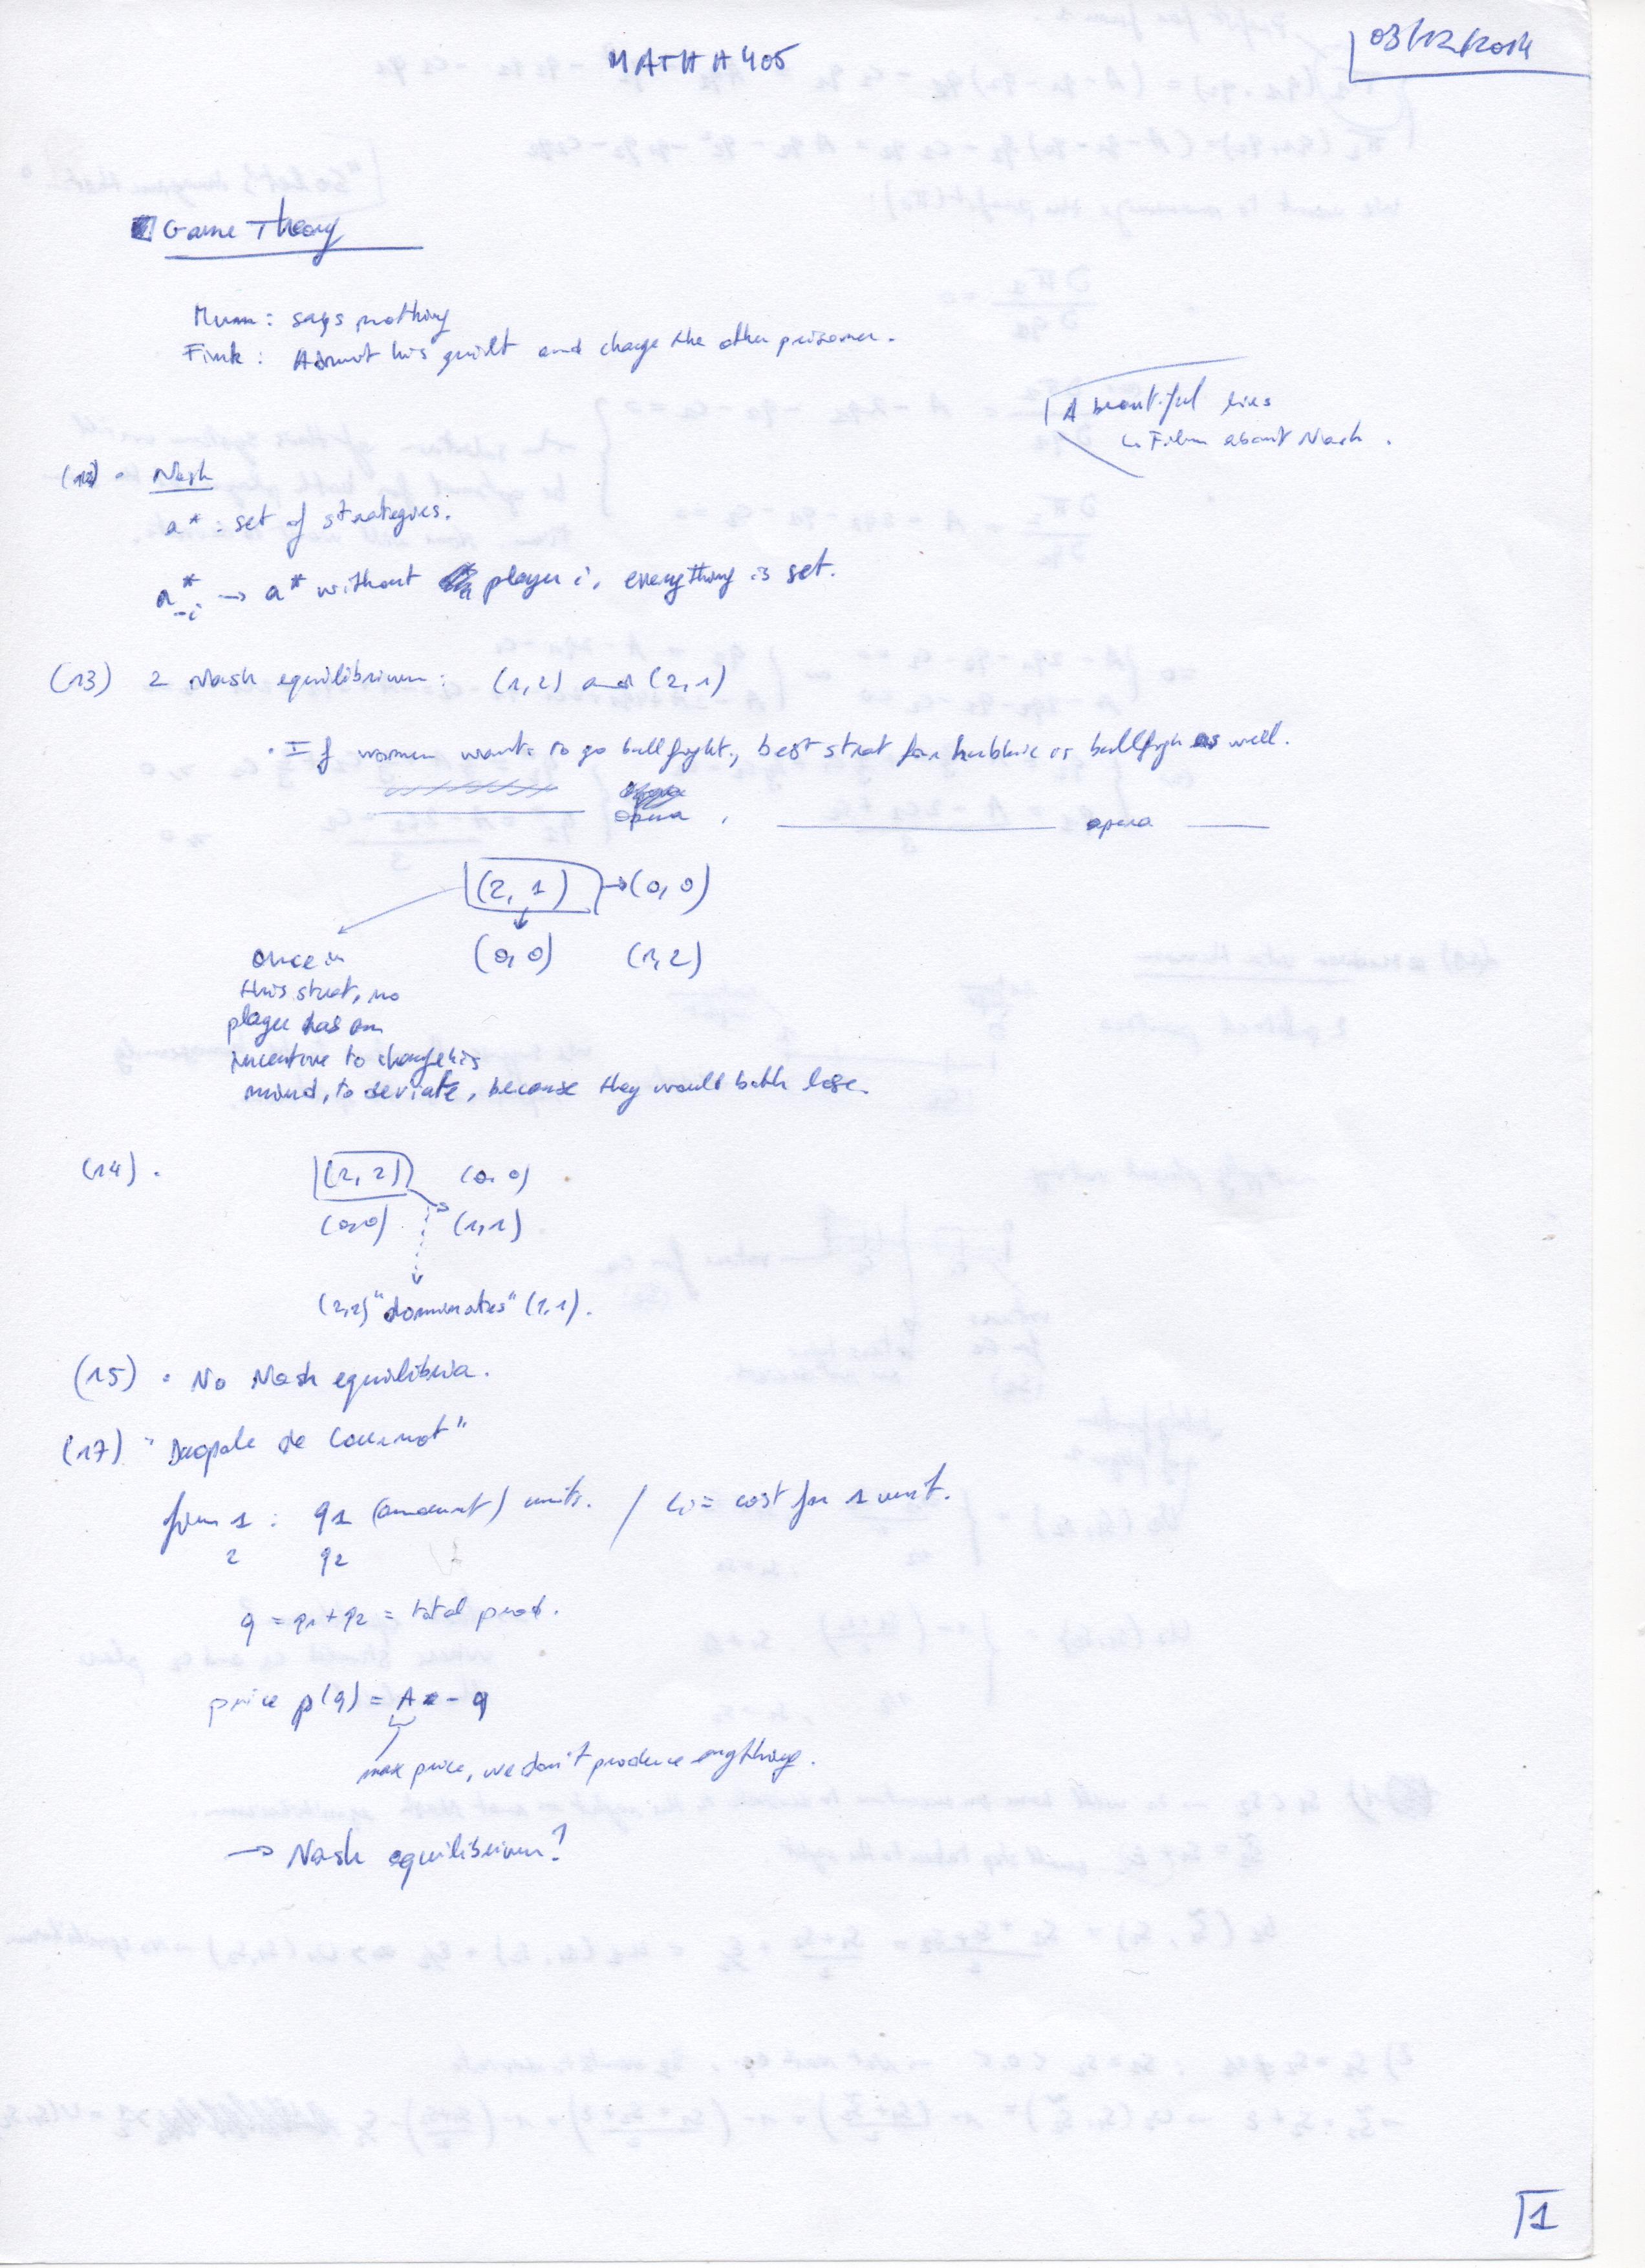 MATH H 405
03/12/2014
Game Theory
Mum : says nothing
Fink : Admit his guilt and charge the other prisoner.
A beautiful lies
↳ Film about Nash.
(12) • Nash
a* : set of strategies.
a*_-i → a* without player i, everything is set.
(13) 2 Nash equilibrium : (1,2) and (2,1)
• If women wants to go bullfight, best strat for hubbie is bullfigh as well.
opera , opera
(2, 1) → (0, 0)
(0, 0) (1, 2)
once in
this strat, no
player has an
incentive to change his
mind, to deviate, because they would both lose.
(14) . (2, 2) (0, 0)
(0,0) (1,1)
(2,2) "dominates" (1,1).
(15) • No Nash equilibria.
(17) "Duopole de Cournot"
firm 1 : q1 (amount) units. / ci = cost for 1 unit.
2 q2
q = q1+q2 = total prod.
price p(q) = A - q
max price, we don't produce anything.
→ Nash equilibrium?
1